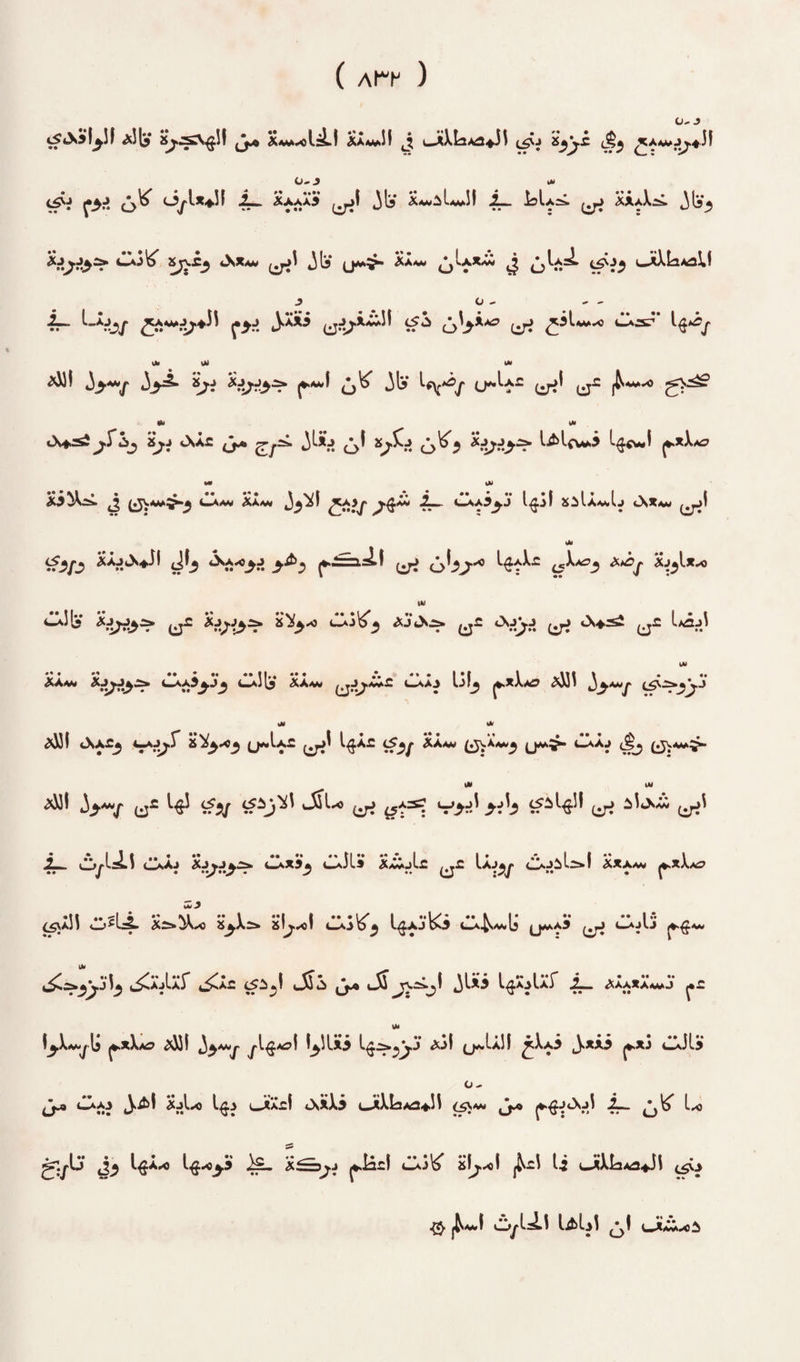 ( ٨٣٢ )
المُرَيْسِيع وهي غزوة بني المصطلق في السنة الخامسة من الهجرة قاله الواقدي
وقال خليفة بن خيّاط في السادسة قال ابن قُتَيْبة في المعارف كان يوم بني
المصطلق وبني لحيان في شعبان سنة خمس قال ابن سعد وغيره كانت جويرية
رضها تحت مسافع بن صفوان ذي الشَفْرَيْن فقتل يوم المُريسيع روينا في
صحيح مسلم عن ابن عبّاس رضهما قال كان اسم جويرية برّة فحوّل رسول الله
صلعم اسمها فسماها جويريّة وكان يكره ان يقال خرج من عند برّة وذكر محمد
ابن سعد باسناده انها توفّيت في شهر ربيع الاوّل سنة ست وخمسين في خلافة
معاوية رضه وصلّى عليها مروان بن الحكم وهو يومئذ والي المدينة وروي
ايضا عن محمد بن يزيد عن جدّته وكانت مولاة جويرية عن جويرية قالت
تزوجني رسول الله صلعم وانا بنت عشرين سنة قالت وتوفّيت جويرية سنة
خمسين وهي بنت خمس وستّين سنة روى عنها ابن عبّاس ومولاه كريب وعبد الله
ابن شدّاد بن الهادي وابو ايّوب يحيى بن مالك الازدي روي لها عن رسول الله
صلعم سبعة احاديث روينا عن عايشة قالت وقعت جويرية بنت الحارث في
سهم ثابت بن قيس فاسلمت فكاتبها وكانت امراة حلوة مُلّاحة فجاءت النبي
عم تستعينه في كتابتها فقال اوخير لك من ذلك اودي عنك كتابتك واتزوّجك
قالت نعم ففعل فبلغ الناس انه تزوجها فقالوا اصهار رسول الله صلعم فارسلوا
ما كان في ايديهم من سبي المصطلق فلقد اعتق بها ماية اهل بيت من
بني المصطلق فما اعلم امراة كانت اعظم بركة على قومها منها وفي تاريخ
دمشق ان اباها الحارث اسلم